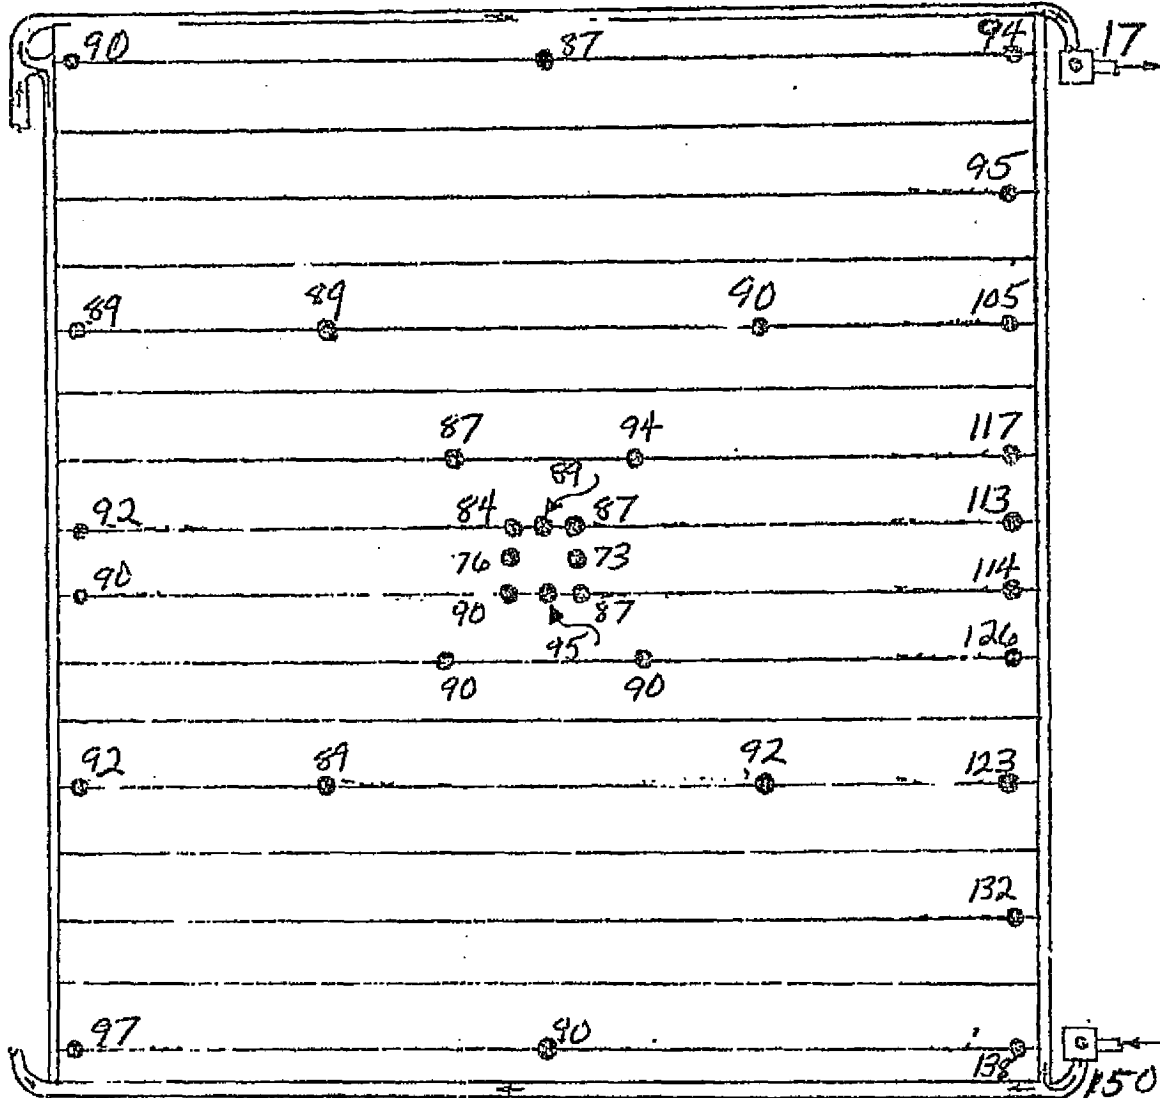 90 87 94 17
95
89 89 90 105
87 94 117
89
92 84 87 113
76 73
90 114
90 87
95 126
90 90
92 89 92 123
132
97 90
138
150